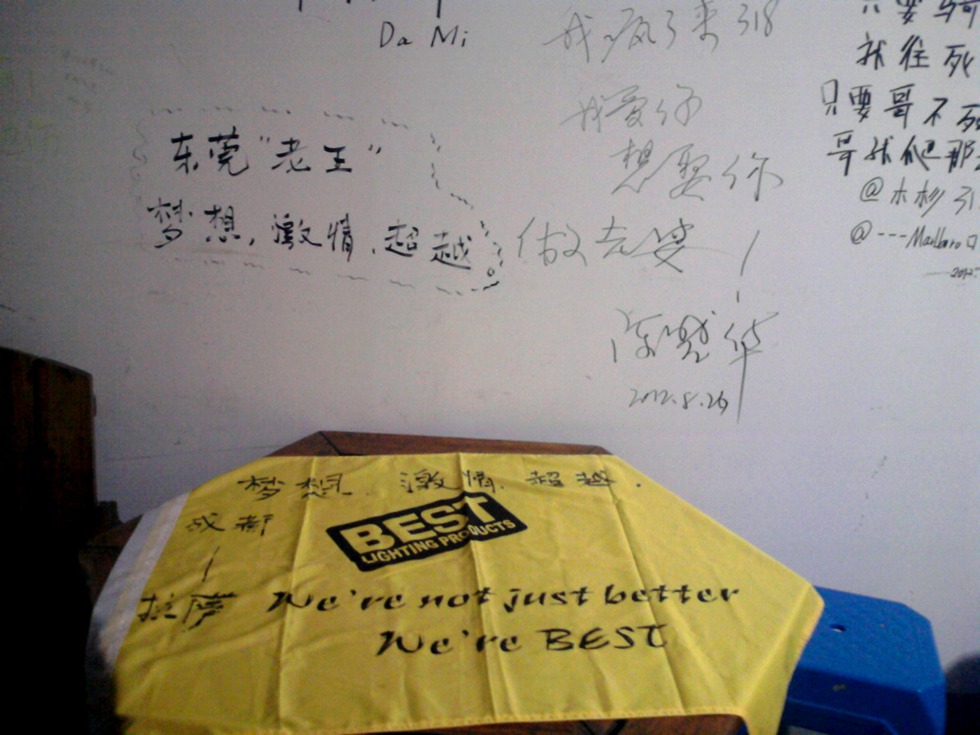 Da Mi
我疯了来318
我爱你
想娶你
做老婆！
2012.8.26
东莞"老王"
梦想,激情,超越。
只要骑
就往死
只要哥不死
哥就爬那
@木杉31
@---Marlboro口
梦想.激情.超越.
成都
—
拉萨
BEST
LIGHTING PRODUCTS
We're not just better
We're BEST